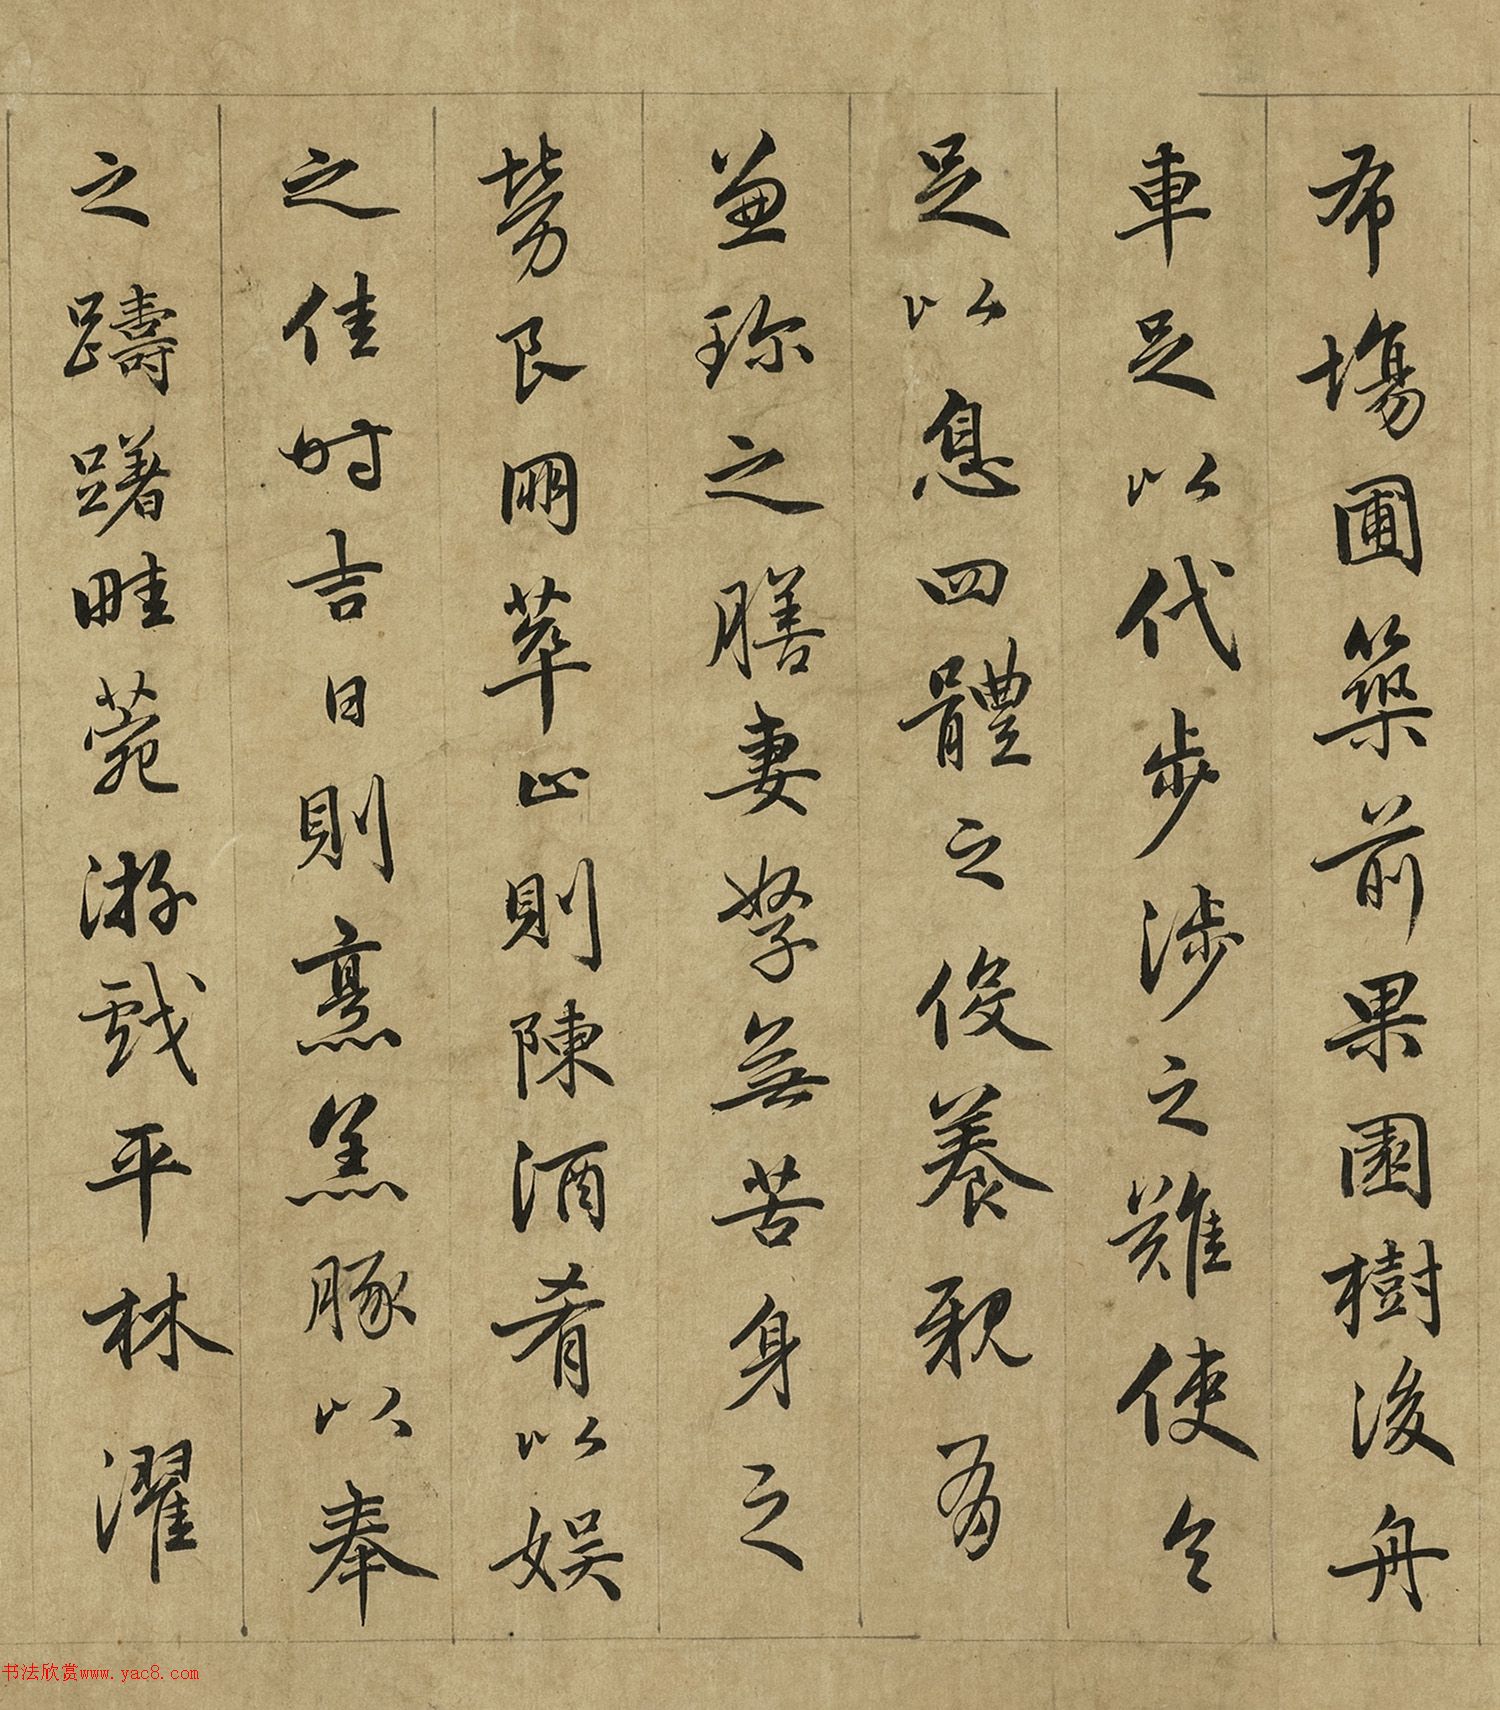 布塲圃築前果園樹後舟
車足以代步涉之難使令
足以息四體之伇養親有
兼珍之膳妻孥無苦身之
勞良朋萃止則陳酒肴以娛
之佳时吉日則烹羔豚以奉
之躊躇畦菀游戲平林濯
书法欣赏www.yac8.com